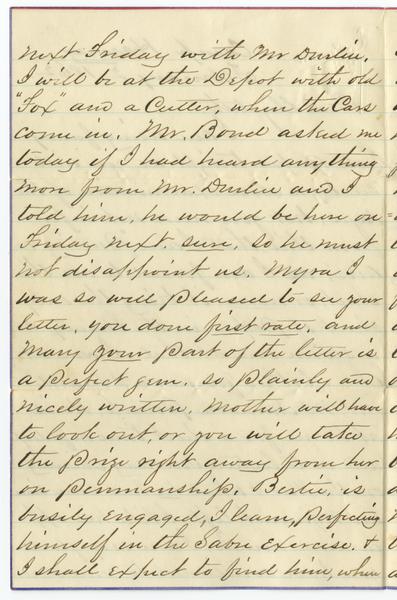 next Friday with Mr Durlin.
I will be at the Depot with old
"Fox" and a Cutter, when the Cars
come in. Mr. Bond asked me
today if I had heard anything
mor from Mr. Durlin and I
told him, he would be here on
Friday next sure, so he must
not disappoint us. Myra I
was so well pleased to see your
letter, you done first rate, and
Mary your part of the letter is
a perfect gem. so plainly and
nicely written. Mother will have
to look out, or you will take
the prize right away from her
on penmanship. Bertie, is
busily engaged, I learn, perfecting
himself in the Sabre Exercise. &
I shall expect to find him, when